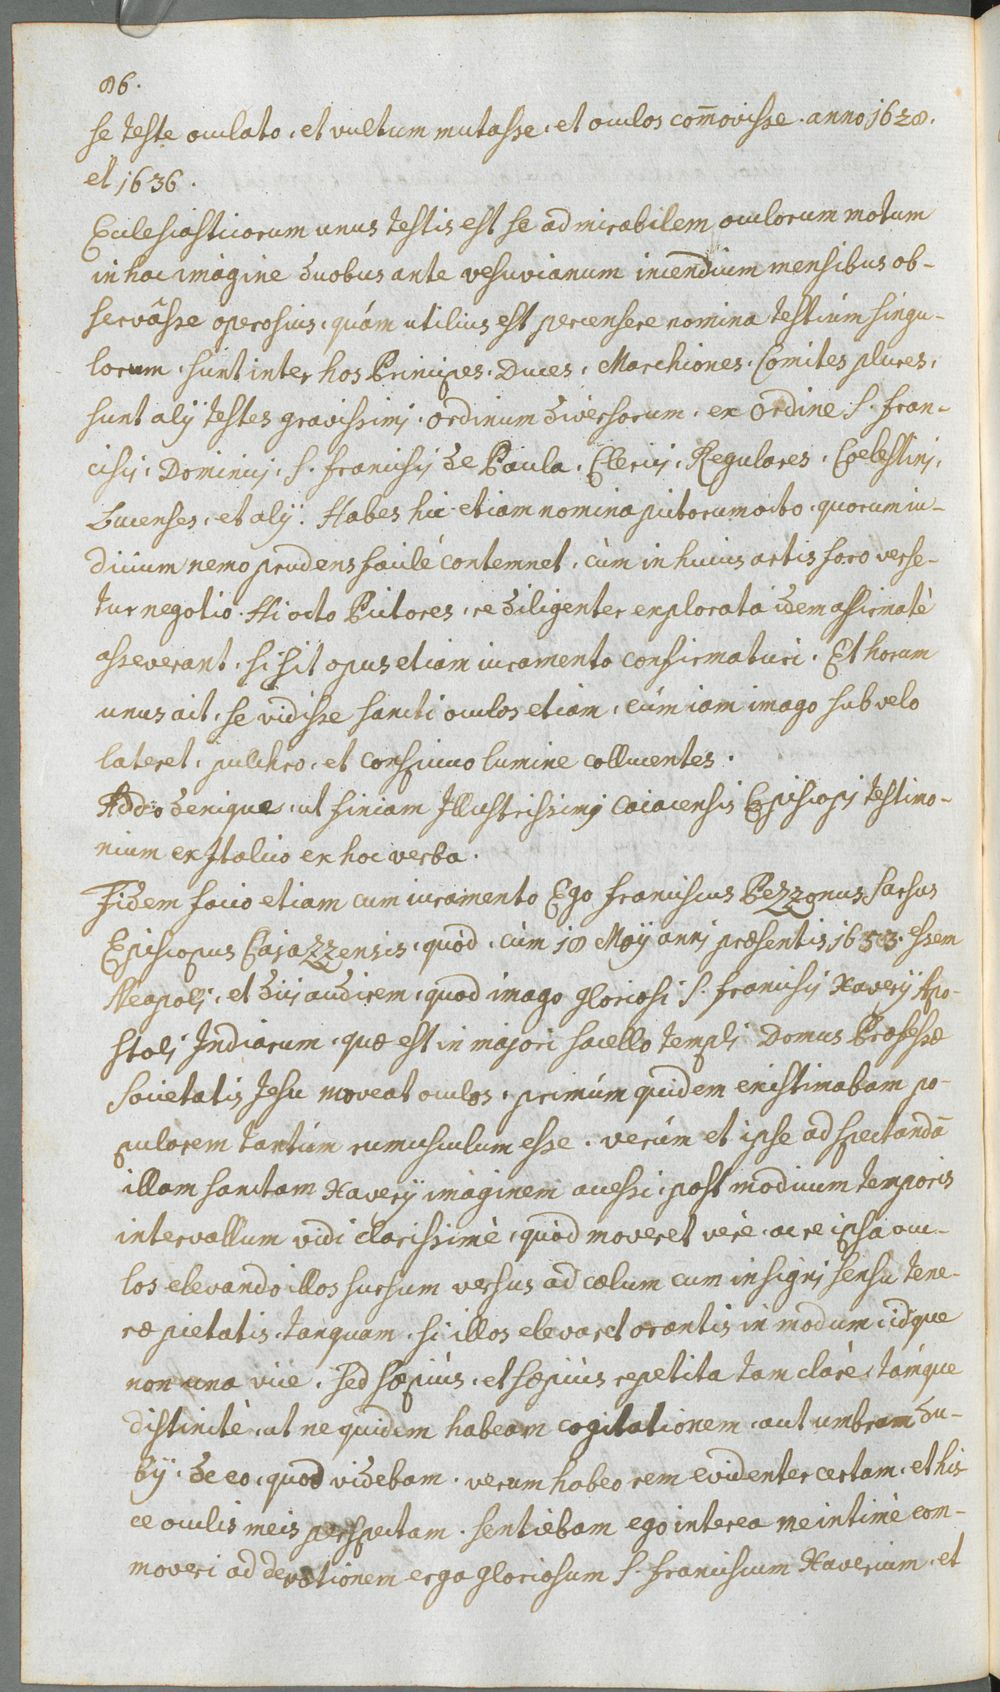 86.
se teste oculato, et vultum mutasse, et oculos com̄ovisse. anno 1628.
et 1636.
Ecclesiasticorum unus testis est se admirabilem oculorum motum
in hac imagine duobus ante vesuvianum incendium mensibus ob-
servâsse operosius, quám utilius est percensere nomina testium singu-
lorum, sunt inter hos Principes, Duces, Marchiones, Comites plures,
sunt alÿ testes gravissimj, ordinum diversorum, ex ordine S. Fran-
ciscj, Dominicj, S. Franciscj de Paula, Clericj, Regulares, Coelestinj,
Lucenses, et alÿ. Habes hic etiam nomina pictorum octo, quorum iu-
dicium nemo prudens facilé contemnet, cùm in huius artis foro verse-
tur negotio. Hi octo Pictores, re diligenter explorata idem assirmatè
asseverant, si sit opus etiam iuramento confirmaturi. Et horum
unus ait, se vidisse sancti oculos etiam, cúm iam imago sub velo
lateret, pulchro, et conspicuo lumine collucentes.
Addo denique, ut finiam Jllustrissimj Caiacensis Episcopj testimo-
nium ex Jtalico ex hoc verba.
Fidem facio etiam cum iuramento Ego Franciscus Pezzonus Sarsus
Episcopus Cajazzensis, quòd, cùm 18 Maÿ annj præsentis 1653. essem
Neapolj, et dicj audirem, quod imago gloriosi S. Franciscj Xaverÿ Apo-
stolj Jndiarum, quæ est in majori sacello templj Domus Professæ
Societatis Jesu moveat oculos, primúm quidem existimabam po-
pularem tantúm rumusculum esse. verùm et ipse ad spectandā
illam sanctam Xaverÿ imaginem accessi, post modicum temporis
intervallum vidi clarissimè, quòd moveret vere, ac re ipsa ocu-
los elevando illos sursum versus ad cælum cum insignj sensu tene-
ræ pietatis, tanquam, si illos elevaret orantis in modum, idque
non una vice, sed sæpiùs, et sæpiùs repetita tam clarè, támque
distinctè, ut ne quidem habeam cogitationem, aut umbram du-
bÿ, de eo, quod videbam, verum habeo rem evidenter certam, et his
ce oculis meis perspectam. sentiebam ego interea me intimè com-
moveri ad devotionem erga gloriosum S. Franciscum Xaverium, et